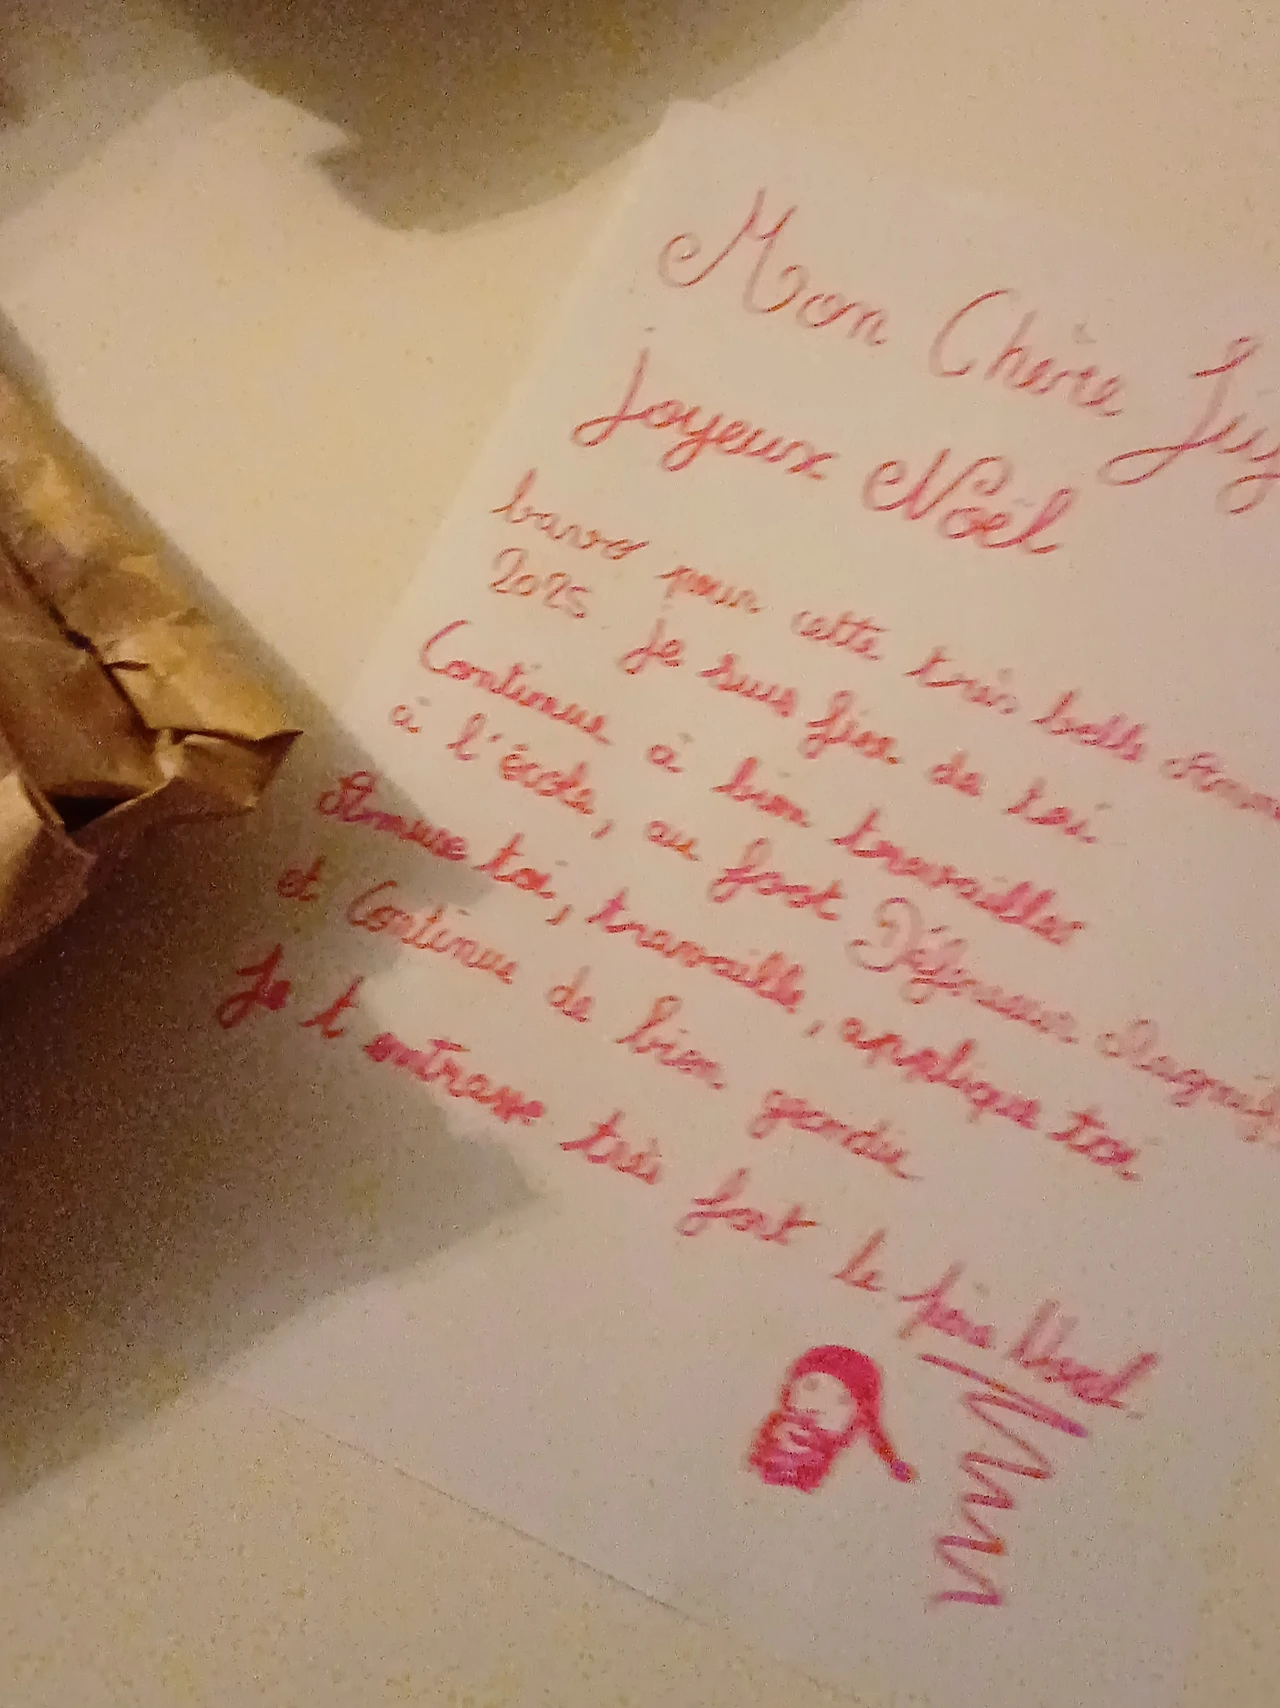 Mon Chère
Joyeux Noël
barvo pour cette très belle
2025 je suis fier de toi
Continue à bien travailler
à l'école, au foot Défenseur
Amuse toi, travaille, applique toi
et Continue de bien
Je t embrasse très fort le père Noël